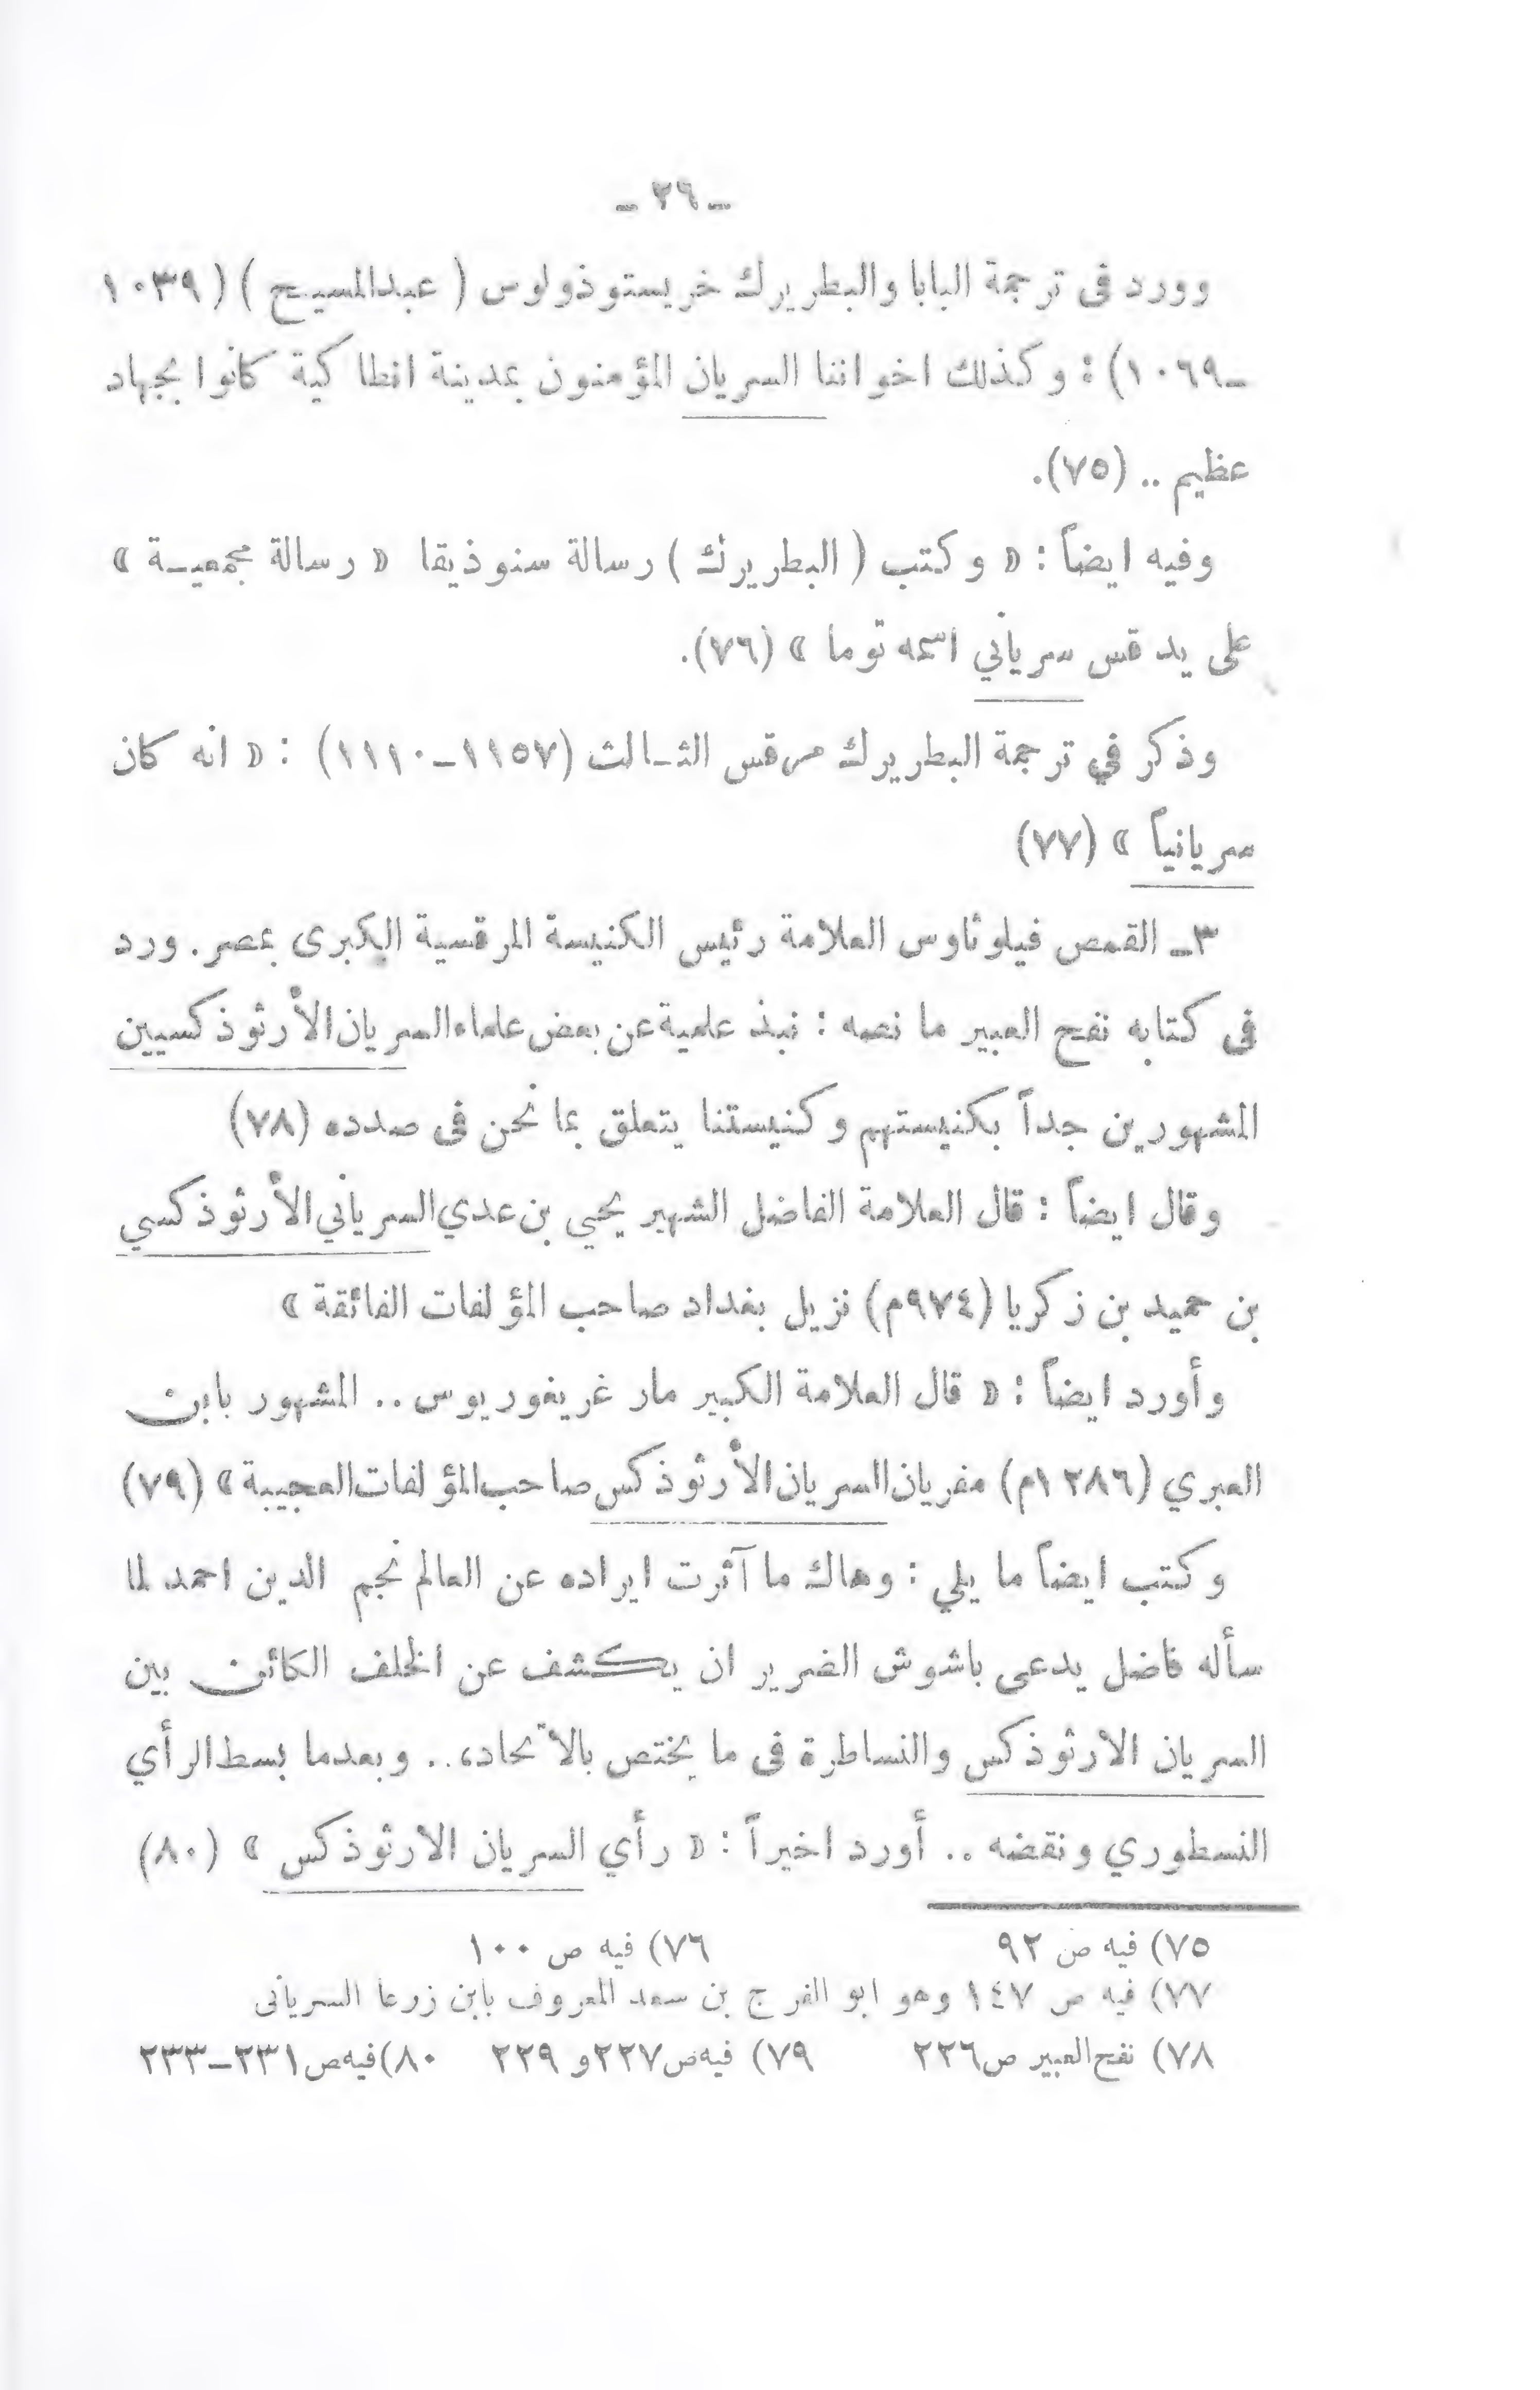 ـ ٢٦ ـ
وورد فى ترجمة البابا والبطريرك خريستوذولوس ( عبدالمسيح ) ( ١٠٣٩
ـ١٠٦٩) : وكذلك اخواننا السريان المؤمنون بمدينة انطاكية كانوا بجهاد
عظيم .. (٧٥).
وفيه ايضاً : « وكتب ( البطريرك ) رسالة سنوذيقا « رسالة مجمعيـة »
على يد قس سرياني اسمه توما » (٧٦).
وذكر في ترجمة البطريرك مرقس الثـالث (١١٥٧ـ١١١٠) : « انه كان
سريانياً » (٧٧)
٣ـ القمص فيلوثاوس العلامة رئيس الكنيسة المرقسية الكبرى بمصر. ورد
فى كتابه نفح العبير ما نصه : نبذ علمية عن بعض علماء السريان الأرثوذكسيين
المشهورين جداً بكنيستهم وكنيستنا يتعلق بما نحن فى صدده (٧٨)
وقال ايضاً : قال العلامة الفاضل الشهير يحيى بن عدي السرياني الأرثوذكسي
بن حميد بن زكريا (٩٧٤م) نزيل بغداد صاحب المؤلفات الفائقة »
وأورد ايضاً : « قال العلامة الكبير مار غريغوريوس .. المشهور بابن
العبري (١٢٨٦م) مفريان السريان الأرثوذكس صاحب المؤلفات العجيبة » (٧٩)
وكتب ايضاً ما يلي : وهاك ما آثرت ايراده عن العالم نجم الدين احمد لما
سأله فاضل يدعى باشوش الضرير ان يكشف عن الخلف الكائن بين
السريان الارثوذكس والنساطرة فى ما يختص بالاتحاد، .. وبعدما بسط الرأي
النسطوري ونقضه .. أورد اخيراً : « رأي السريان الارثوذكس » (٨٠)
٧٥) فيه ص ٩٢ ٧٦) فيه ص ١٠٠
٧٧) فيه ص ١٤٧ وهو ابو الفرج بن سعد المعروف بابن زرعا السريانى
٧٨) نفح العبير ص ٢٢٦ ٧٩) فيه ص ٢٢٧ و ٢٢٩ ٨٠) فيه ص ٢٣١ـ٢٣٣